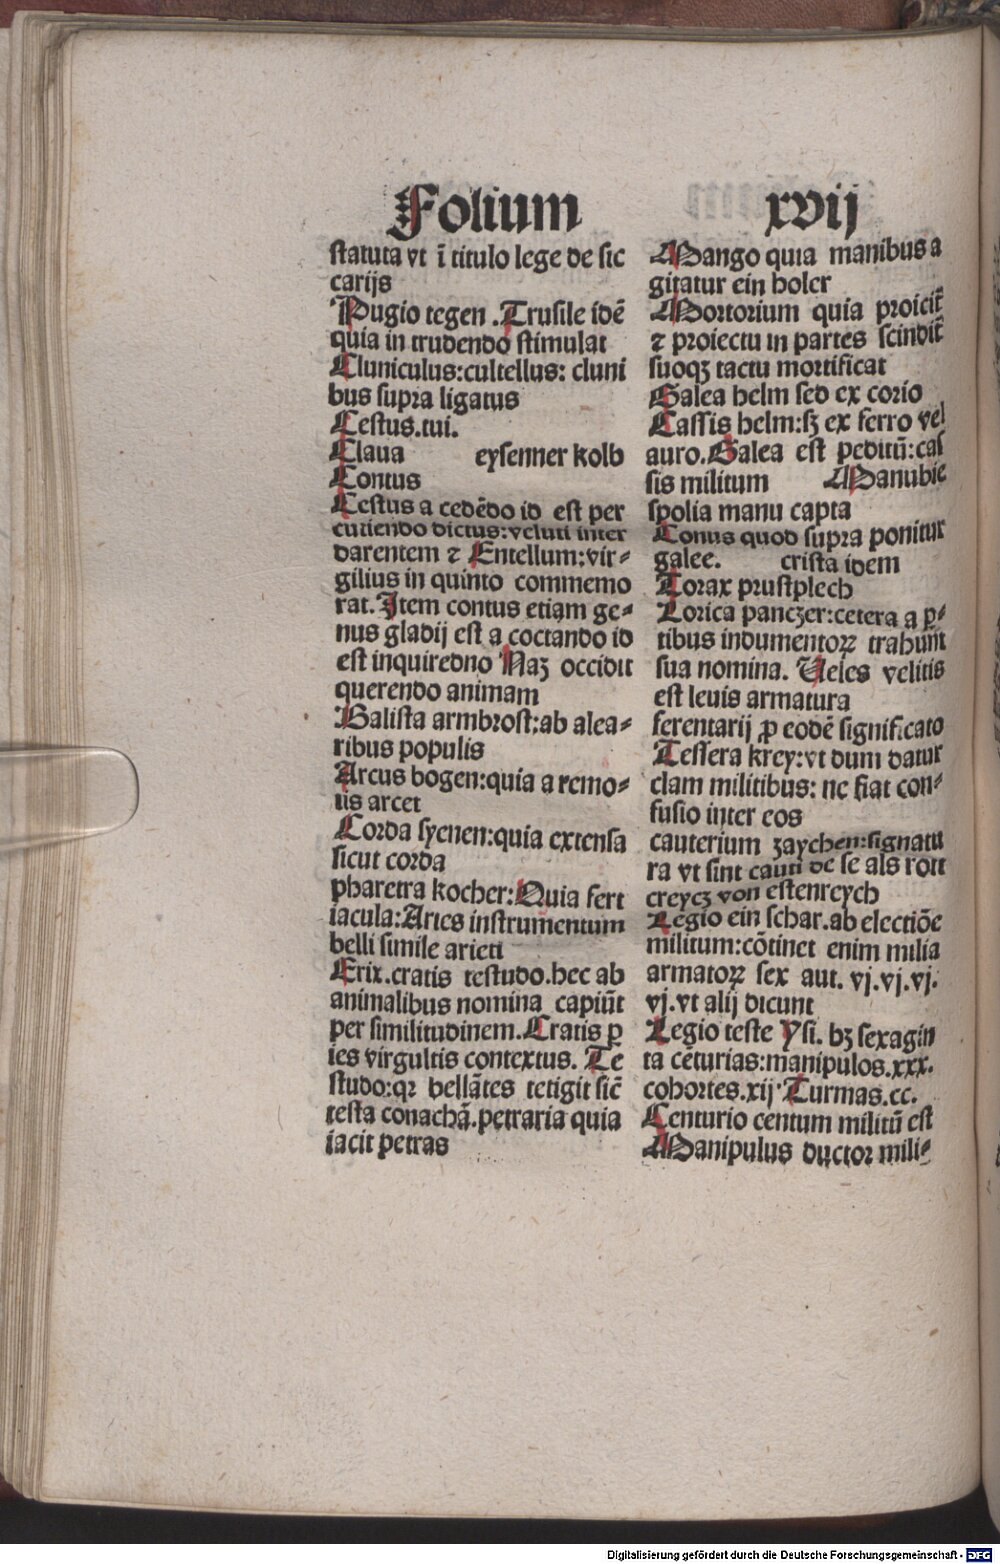 Folium xvij
statuta vt ī titulo lege de sic
carijs
Pugio tegen .Trusile idē
quia in trudendo stimulat
Cluniculus:cultellus: cluni
bus supra ligatus
Cestus.tui.
Claua eysenner kolb
Contus
Cestus a cedēdo id est per
cutiendo dictus:veluti inter
darentem ⁊ Entellum:vir⸗
gilius in quinto commemo
rat.Item contus etiam ge⸗
nus gladij est a coctando id
est inquiredno Naꝫ occidit
querendo animam
Balista armbrost:ab alea⸗
ribus populis
Arcus bogen:quia a remo⸗
tis arcet
Corda syenen:quia extensa
sicut corda
pharetra kocher:Quia fert
iacula:Aries instrumentum
belli simile arieti
Erix.cratis testudo.hec ab
animalibus nomina capiūt
per similitudinem.Cratis ꝑ
ies virgultis contextus. Te
studo:qꝛ bellātes tetigit sic̄
testa conachā.petraria quia
iacit petras
Mango quia manibus a
gitatur ein holer
Mortorium quia proicit̄
⁊ proiectu in partes scindit̄
suoqꝫ tactu mortificat
Galea helm sed ex corio
Cassis helm:sꝫ ex ferro vel
auro.Galea est peditū:cas
sis militum Manubie
spolia manu capta
Conus quod supra ponitur
galee. crista idem
Torax prustplech
Lorica panczer:cetera a ꝑ⸗
tibus indumentoꝝ trahunt
sua nomina. Veles velitis
est leuis armatura
ferentarij ꝓ eodē significato
Tessera krey:vt dum datur
clam militibus: ne fiat con⸗
fusio inter eos
cauterium zaychen:signatu
ra vt sint cauti de se als rott
creycz von estenreych
Legio ein schar.ab electiōe
militum:cōtinet enim milia
armatoꝝ sex aut. vj.vj.vj.
vj.vt alij dicunt
Legio teste Ysi. hꝫ sexagin
ta cēturias:manipulos.xxx.
cohortes.xij.Turmas.cc.
Centurio centum militū est
Manipulus ductor mili⸗
Digitalisierung gefördert durch die Deutsche Forschungsgemeinschaft - DFG